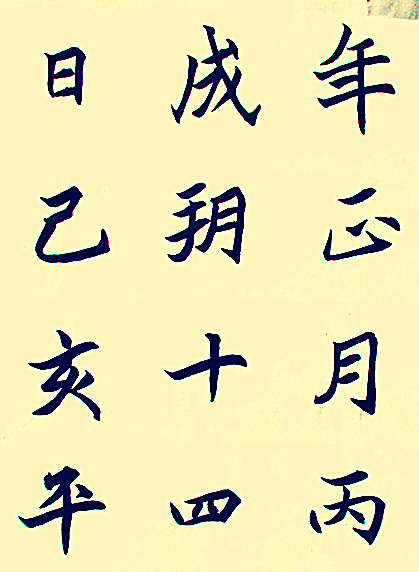 年正月丙
戌朔十四
日己亥平